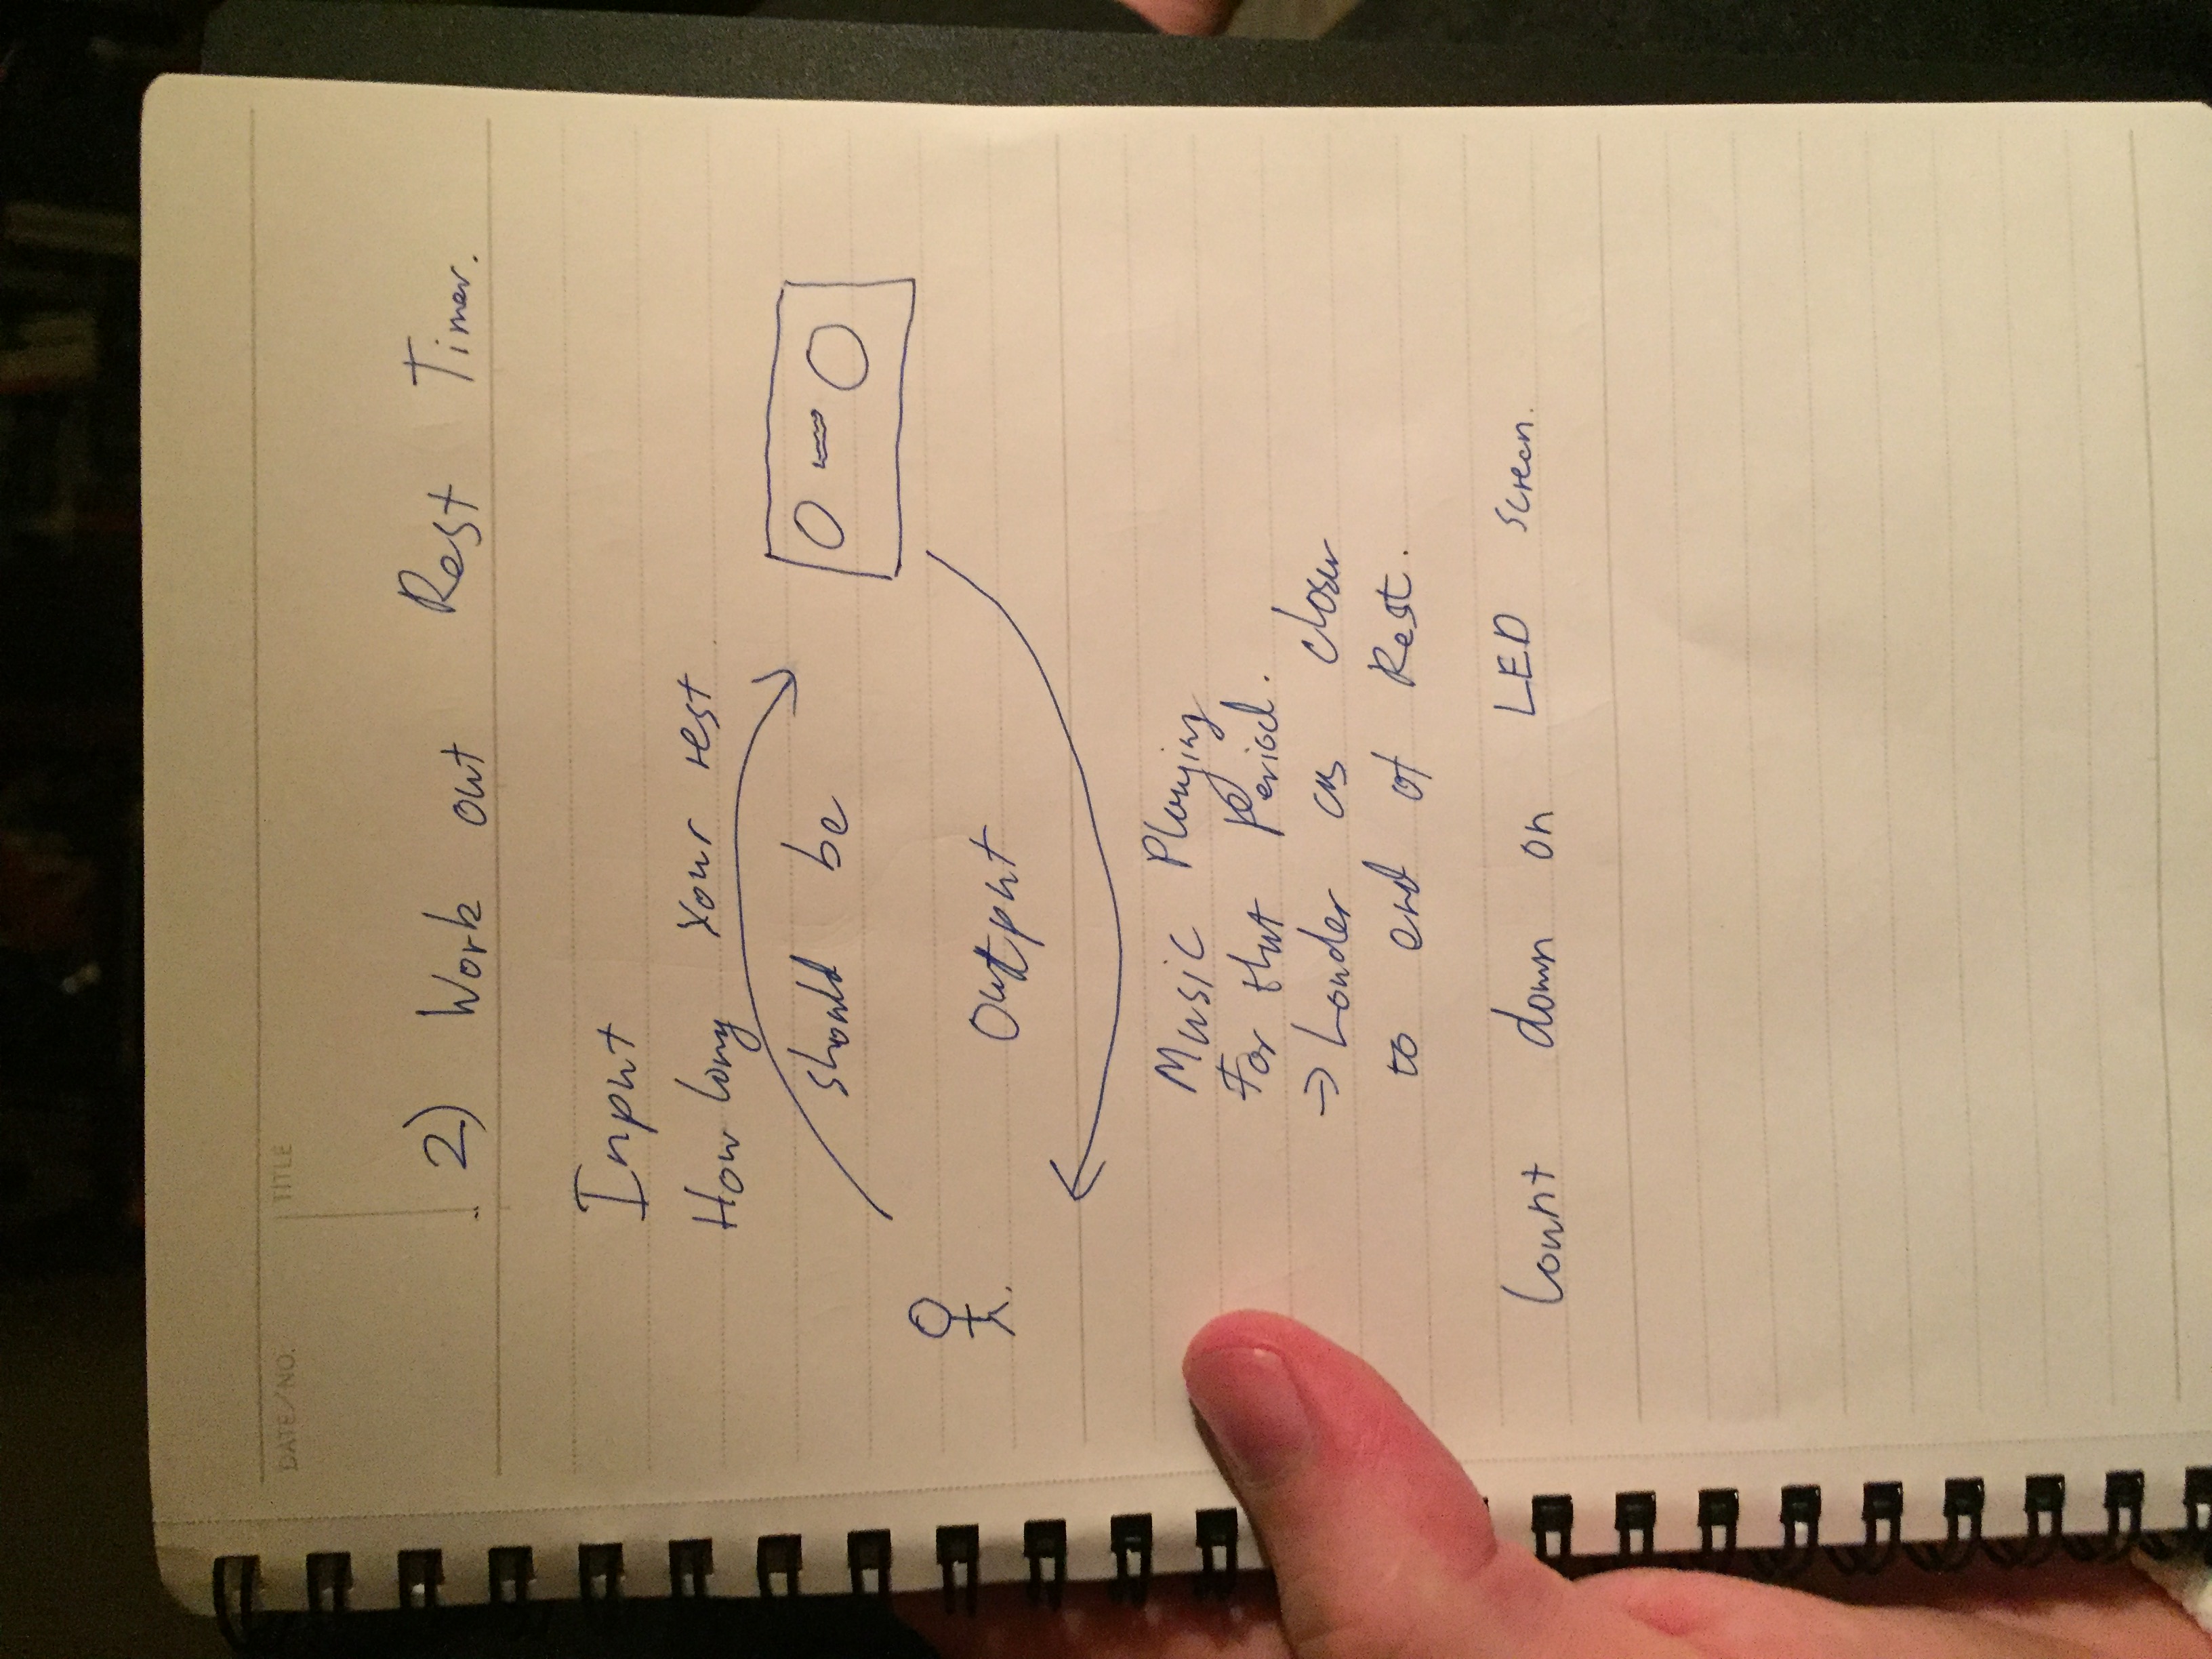 DATE/NO.
TITLE
2) Work out Rest Timer.
Input
How long your rest
should be
Output
Music Playing
For that Period.
→ Louder as closer
to end of Rest.
Count down on LED screen.